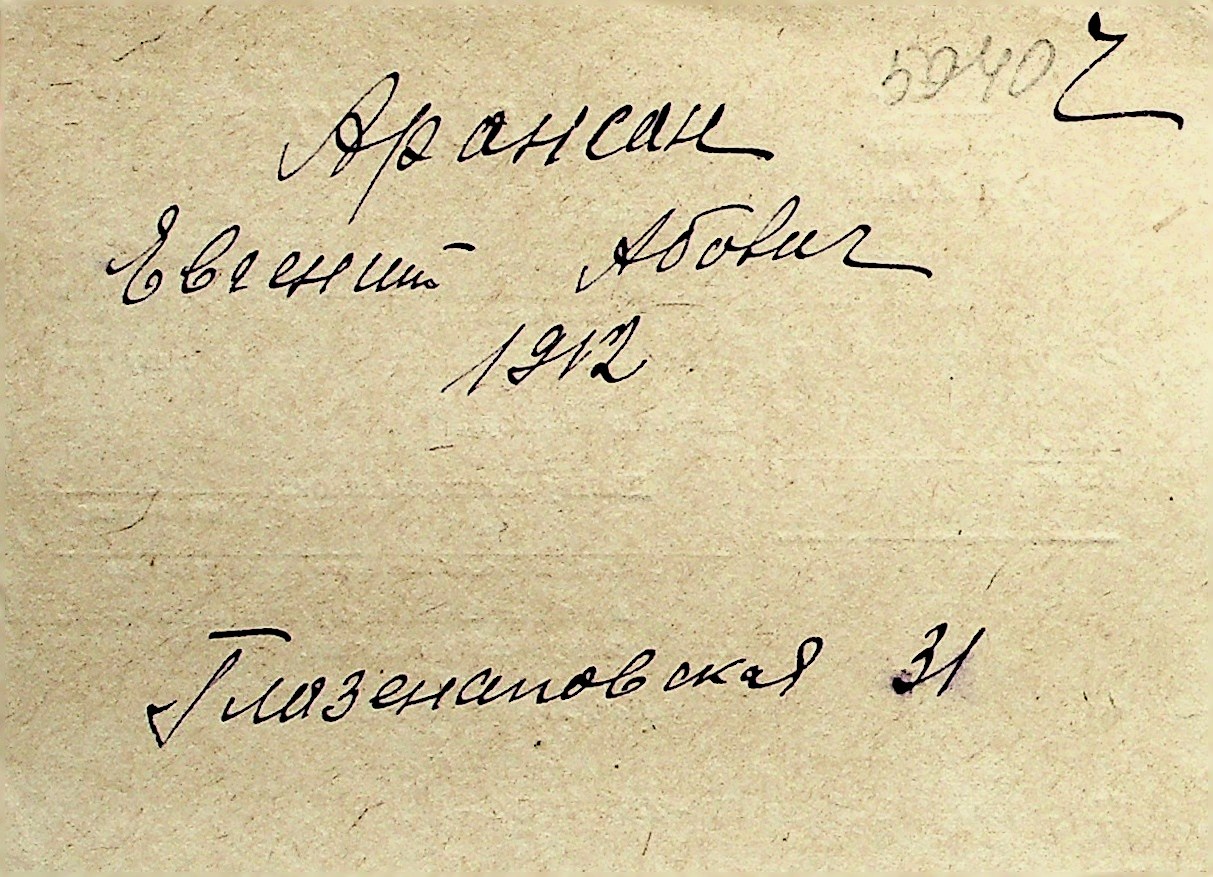 5940 Ч
Арансан
Евгений Абович
1912
Глазенаповская 31